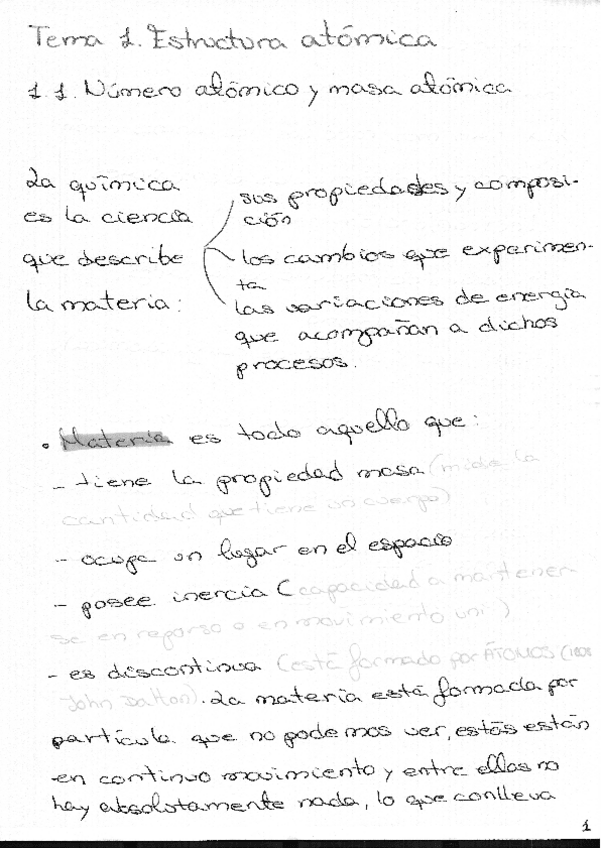 Tema 1. Estructura atómica
1.1. Número atómico y masa atómica
La química
es la ciencia
que describe
la materia:
sus propiedades y composi-
ción
los cambios que experimen-
ta
las variaciones de energía
que acompañan a dichos
procesos.
• Materia es todo aquello que:
- tiene la propiedad masa (mide la
cantidad que tiene un cuerpo)
- ocupa un lugar en el espacio
- posee inercia (capacidad a mantener-
se en reposo o en movimiento uni)
- es discontinua (está formado por ÁTOMOS
John Dalton). La materia está formada por
partícula que no podemos ver, estás están
en continuo movimiento y entre ellas no
hay absolutamente nada, lo que conlleva
1